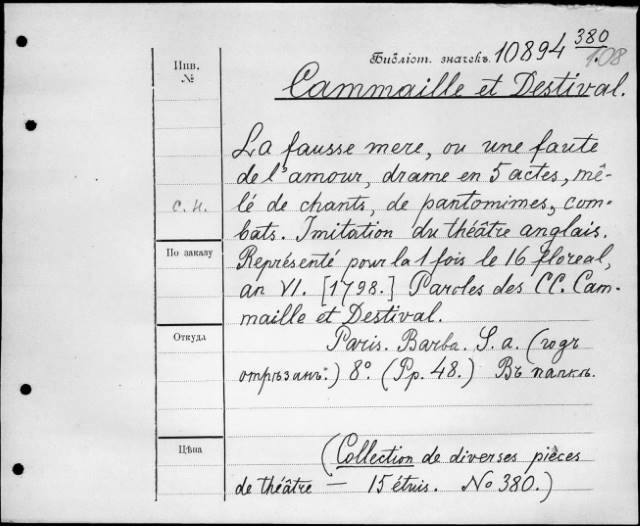 380
Инв.
№
Библіот. значекъ. 10894 108
Cammaille et Destival.
La fausse mere, ou une faute
de l'amour, drame en 5 actes, mê-
lé de chants, de pantomimes, com-
С. Н.
bats. Imitation du théâtre anglais.
По заказу
Représenté pour la 1 fois le 16 floreal,
an VI. [1798.] Paroles des CC. Cam-
maille et Destival.
Откуда
Paris. Barba. S. a. (годъ
отрѣзанъ.) 8°. (Pp. 48.) Въ папкѣ.
Цѣна
(Collection de diverses pièces
de théâtre — 15 étuis. No 380.)